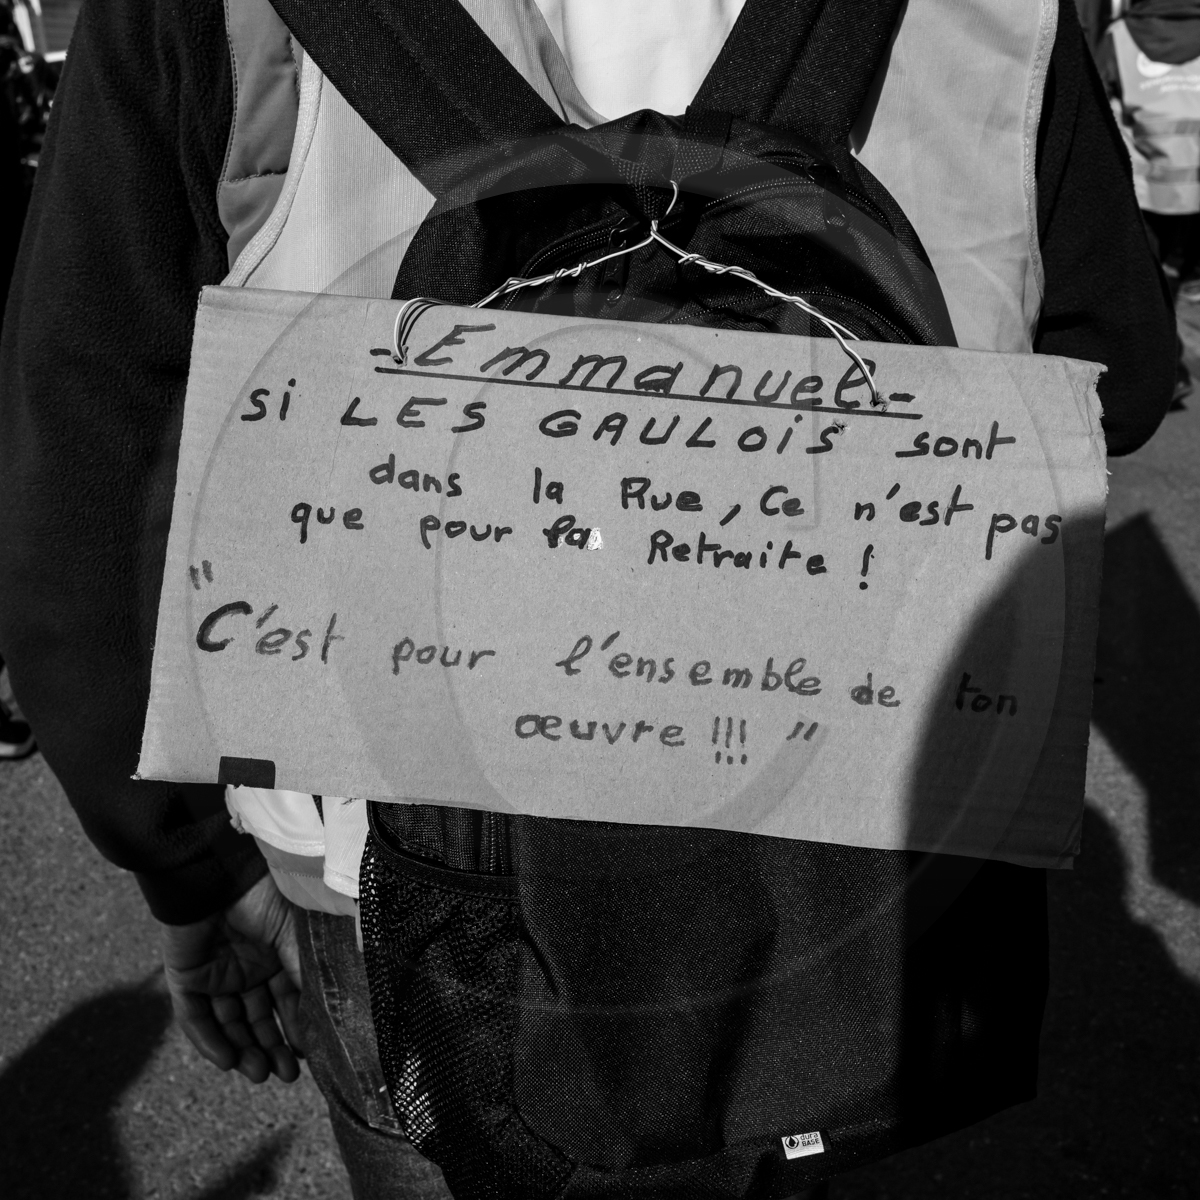 - Emmanuel -
si LES GAULOIS sont
dans la Rue, Ce n'est pas
que pour la Retraite !
"C'est pour l'ensemble de ton
œuvre !!! "
dura
BASE